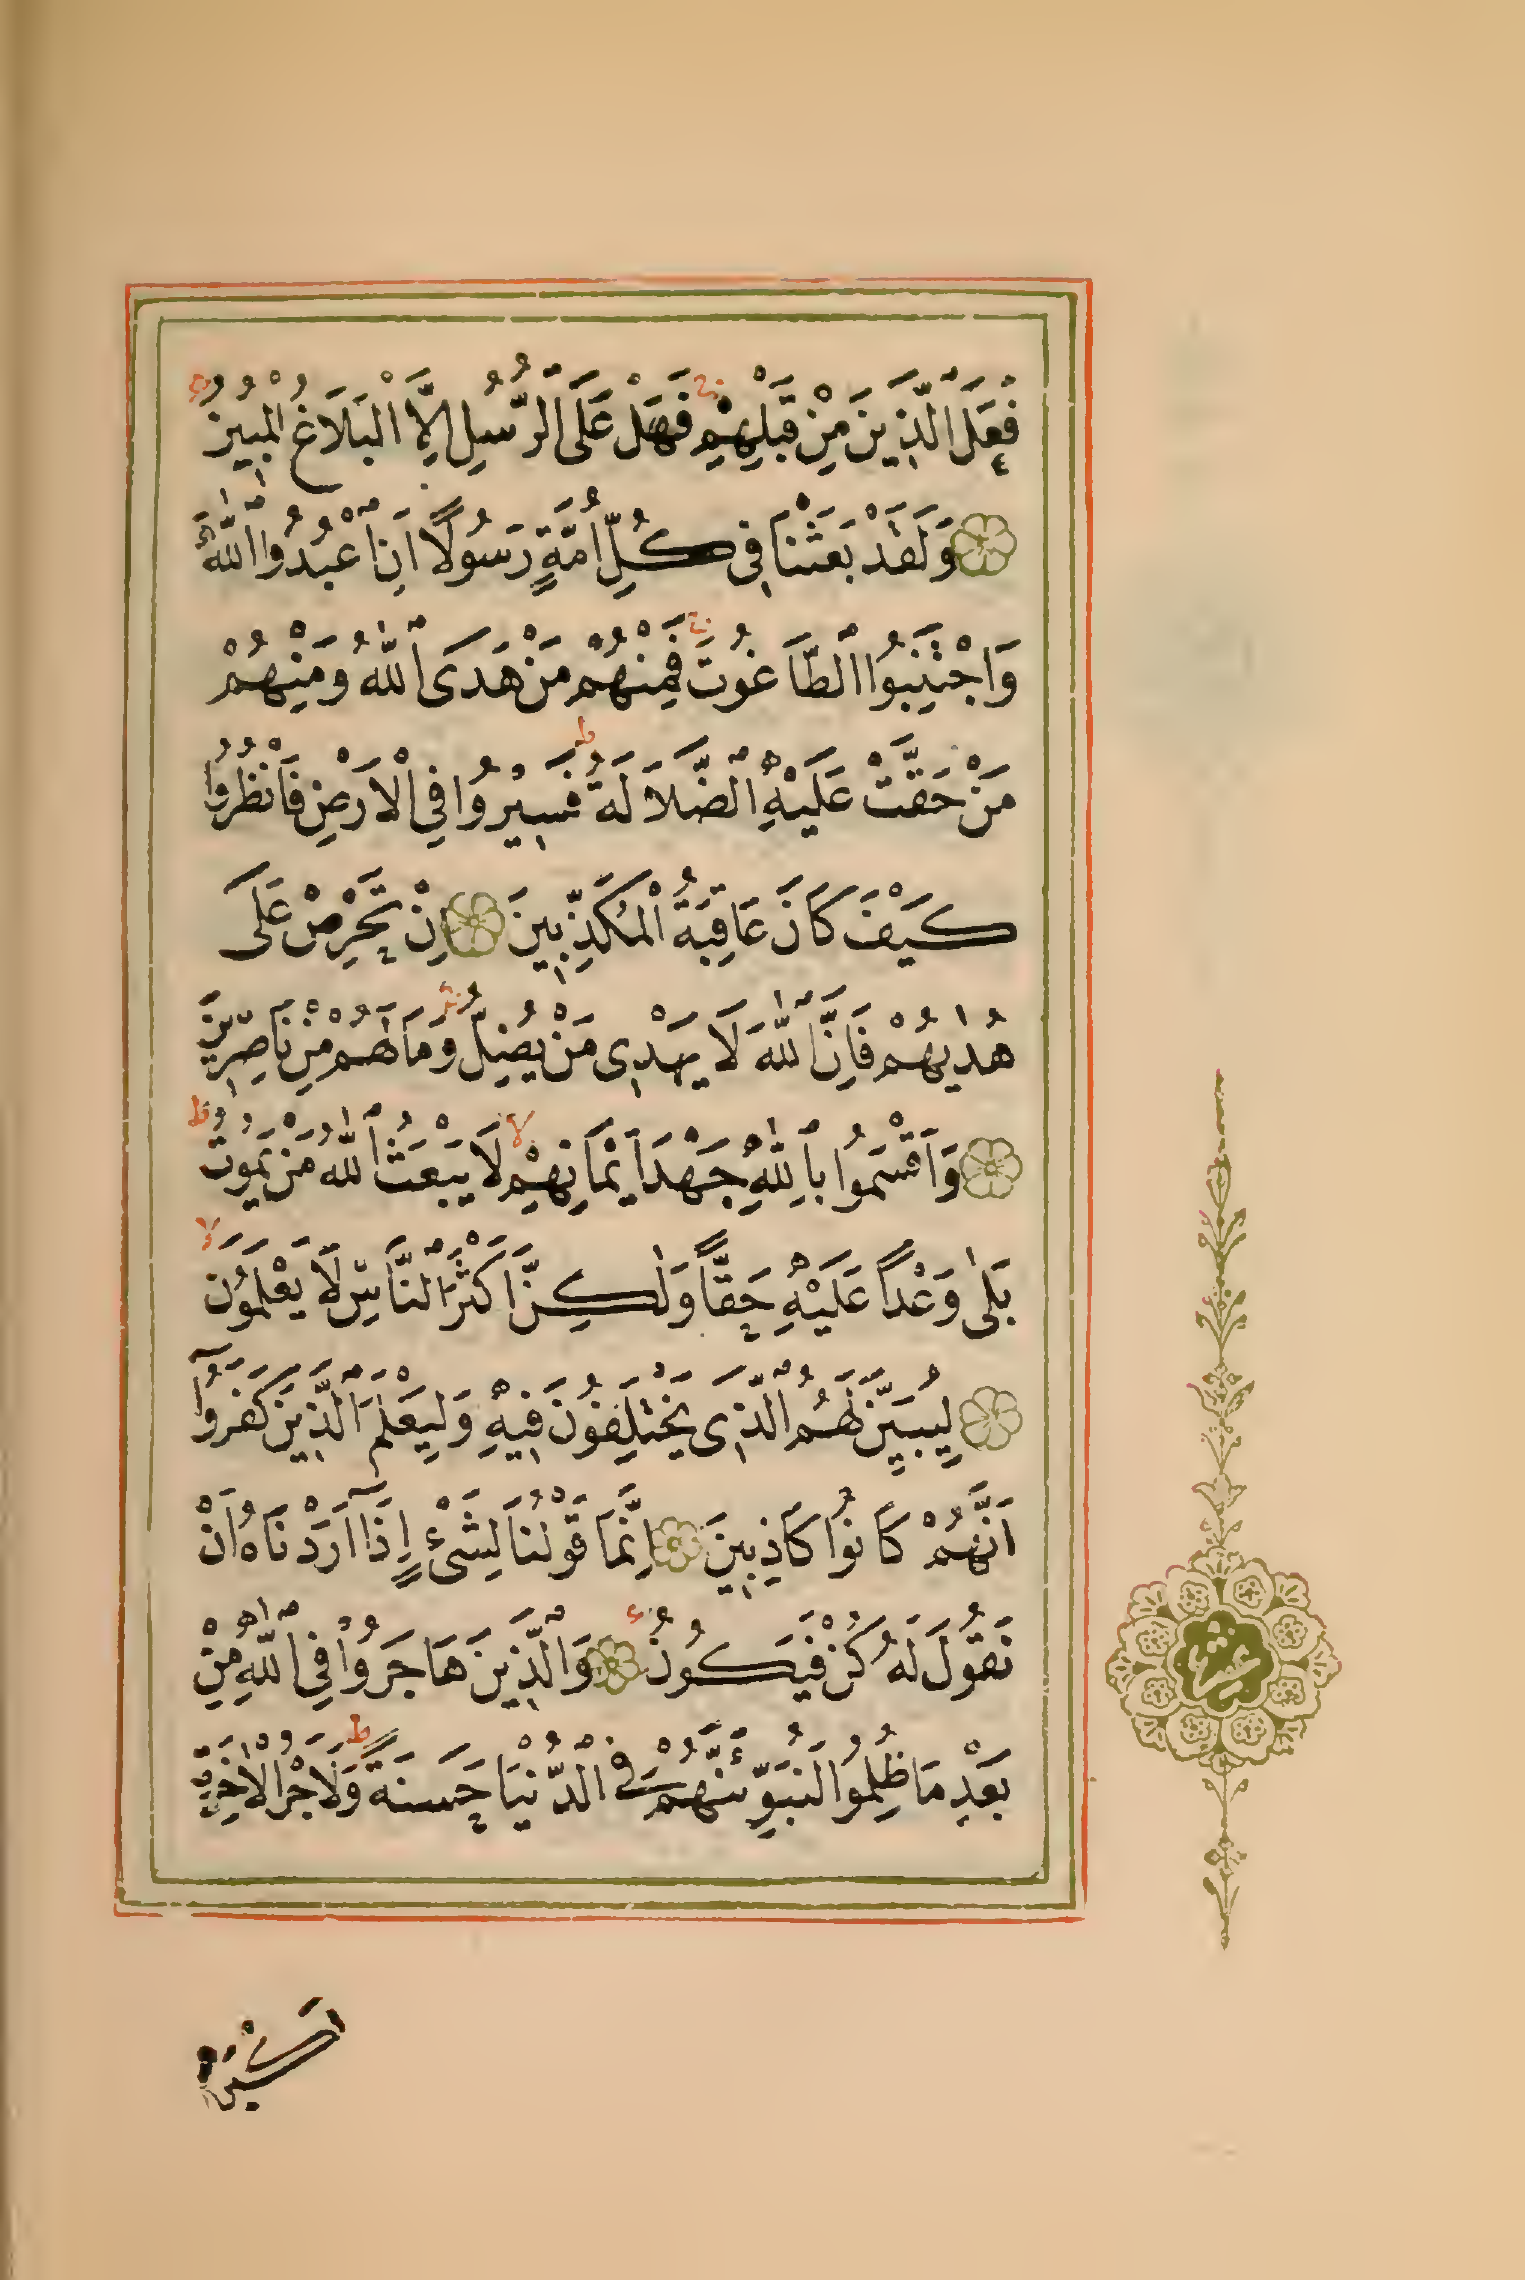 فَعَلَ الَّذِينَ مِنْ قَبْلِهِمْ فَهَلْ عَلَى الرُّسُلِ اِلَّا الْبَلَاغُ الْمُبِينُ
وَلَقَدْ بَعَثْنَا فِى كُلِّ اُمَّةٍ رَسُولًا اَنِ اعْبُدُوا اللّٰهَ
وَاجْتَنِبُوا الطَّاغُوتَ فَمِنْهُمْ مَنْ هَدَى اللّٰهُ وَمِنْهُمْ
مَنْ حَقَّتْ عَلَيْهِ الضَّلَالَةُ فَسِيرُوا فِى الْاَرْضِ فَانْظُرُوا
كَيْفَ كَانَ عَاقِبَةُ الْمُكَذِّبِينَ اِنْ تَحْرِصْ عَلَى
هُدٰيهُمْ فَاِنَّ اللّٰهَ لَا يَهْدِى مَنْ يُضِلُّ وَمَا لَهُمْ مِنْ نَاصِرِينَ
وَاَقْسَمُوا بِاللّٰهِ جَهْدَ اَيْمَانِهِمْ لَا يَبْعَثُ اللّٰهُ مَنْ يَمُوتُ
بَلٰى وَعْدًا عَلَيْهِ حَقًّا وَلٰكِنَّ اَكْثَرَ النَّاسِ لَا يَعْلَمُونَ
لِيُبَيِّنَ لَهُمُ الَّذِى يَخْتَلِفُونَ فِيهِ وَلِيَعْلَمَ الَّذِينَ كَفَرُوا
اَنَّهُمْ كَانُوا كَاذِبِينَ اِنَّمَا قَوْلُنَا لِشَىْءٍ اِذَا اَرَدْنَاهُ اَنْ
نَقُولَ لَهُ كُنْ فَيَكُونُ وَالَّذِينَ هَاجَرُوا فِى اللّٰهِ مِنْ
بَعْدِ مَا ظُلِمُوا لَنُبَوِّئَنَّهُمْ فِى الدُّنْيَا حَسَنَةً وَلَاَجْرُ الْاٰخِرَةِ
عشر
اَكْبَرُ